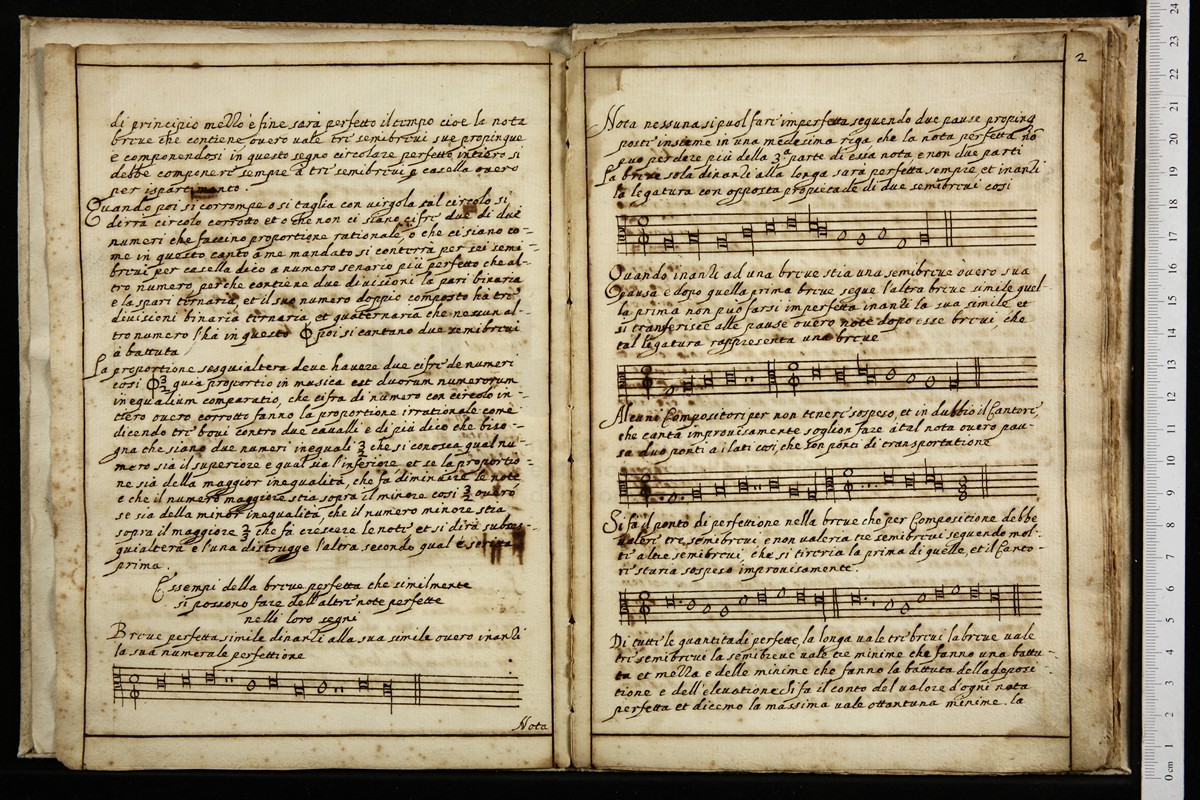 di principio mezzo è fine sarà perfetto il tempo cioè la nota
breve che contiene ouero uale tre semibreui sue propinque
e componendosi in questo segno circolare perfetto intiero si
debbe componere sempre à tre semibreui p casella ouero
per ispartimento.
Quando poi si corrompe o si taglia con uirgola tal circolo si
dirrà circolo corrotto et o che non ci siano cifre due di due
numeri che faccino proportione rationale, o che ci siano co=
me in questo canto à me mandato si contirrà per sei semi=
breui per casella dico a numero senario più perfetto che al=
tro numero, perche contiene due diuisioni la pari binaria
e la spari ternaria, et il suo numero doppio composto ha tre
diuisioni binaria ternaria, et quaternaria che nessun al=
tro numero l'hà in questo poi si cantano due semibreui
à battuta
La proportione sesquialtera deue hauere due cifre de numeri
cosi 3/2 quia proportio in musica est duorum numerorum
inequalium comparatio, che cifra di numero con circolo in=
tiero ouero corrotto fanno la proportione irrationale come
dicendo tre boui contro due caualli e di più dico che biso=
gna che siano due numeri ineguali 3/2 che si conosca qual nu=
mero sia il superiore e qual sia l'inferiore et se la proportio=
ne sià della maggior inequalità, che fà diminuire le note
e che il numero maggiore stia sopra il minore cosi 3/2 ouero
se sia della minor inequalità che il numero minore stia
sopra il maggiore 2/3 che fà crescere le note et si dirà subses=
quialtera e l'una distrugge l'altra secondo qual è scritta
prima.
Essempi della breue perfetta che similmente
si possono fare dell'altre note perfette
nelli loro segni
Breue perfetta simile dinanzi alla sua simile ouero inanzi
la sua numerale perfettione
Nota
2
Nota nessuna si puol fare imperfetta seguendo due pause proping
posti insieme in una medesima riga che la nota perfetta nō
può perdere più della 3ª parte di essa nota e non due parti
La breue sola dinanzi alla longa sarà perfetta sempre et inanzi
la legatura con opposta propietade di due semibreui cosi
Quando inanzi ad una breue stia una semibreue ouero sua
pausa e dopo quella prima breue segue l'altra breue simile quel=
la prima non può farsi imperfetta inanzi la sua simile et
si transferisce alle pause ouero note dopo esse breui, che
tal legatura rappresenta una breue
Alcuni Compositori per non tenere sospeso, et in dubbio il Cantore,
che canta improuisamente soglion fare à tal nota ouero pau=
sa duo ponti a i lati cosi, che son ponti di transportatione
Si fà il ponto di perfettione nella breue che per Compositione debbe
ualere tre semibreui e non valeria tre semibreui seguendo mol=
te altre semibreui che si tireria la prima di quelle, et il Canto=
re staria sospeso improuisamente.
Di tutte le quantita di perfette, la longa uale tre breui la breue uale
tre semibreui la semibreue uale tre minime che fanno una battu=
ta et mezza e delle minime che fanno la battuta della deposi
tione e dell'eleuatione Si fà il conto del ualore d'ogni nota
perfetta et dicemo la massima uale ottantuna minime. la